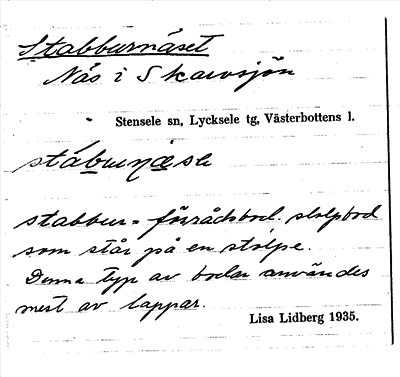 Stabburnäset
Näs i Skarvsjön
Stensele sn, Lycksele tg, Västerbottens l.
stabbur = förrådsbod. stolpbod
som står på en stolpe.
Denna typ av bodar användes
mest av lappar.
Lisa Lidberg 1935.